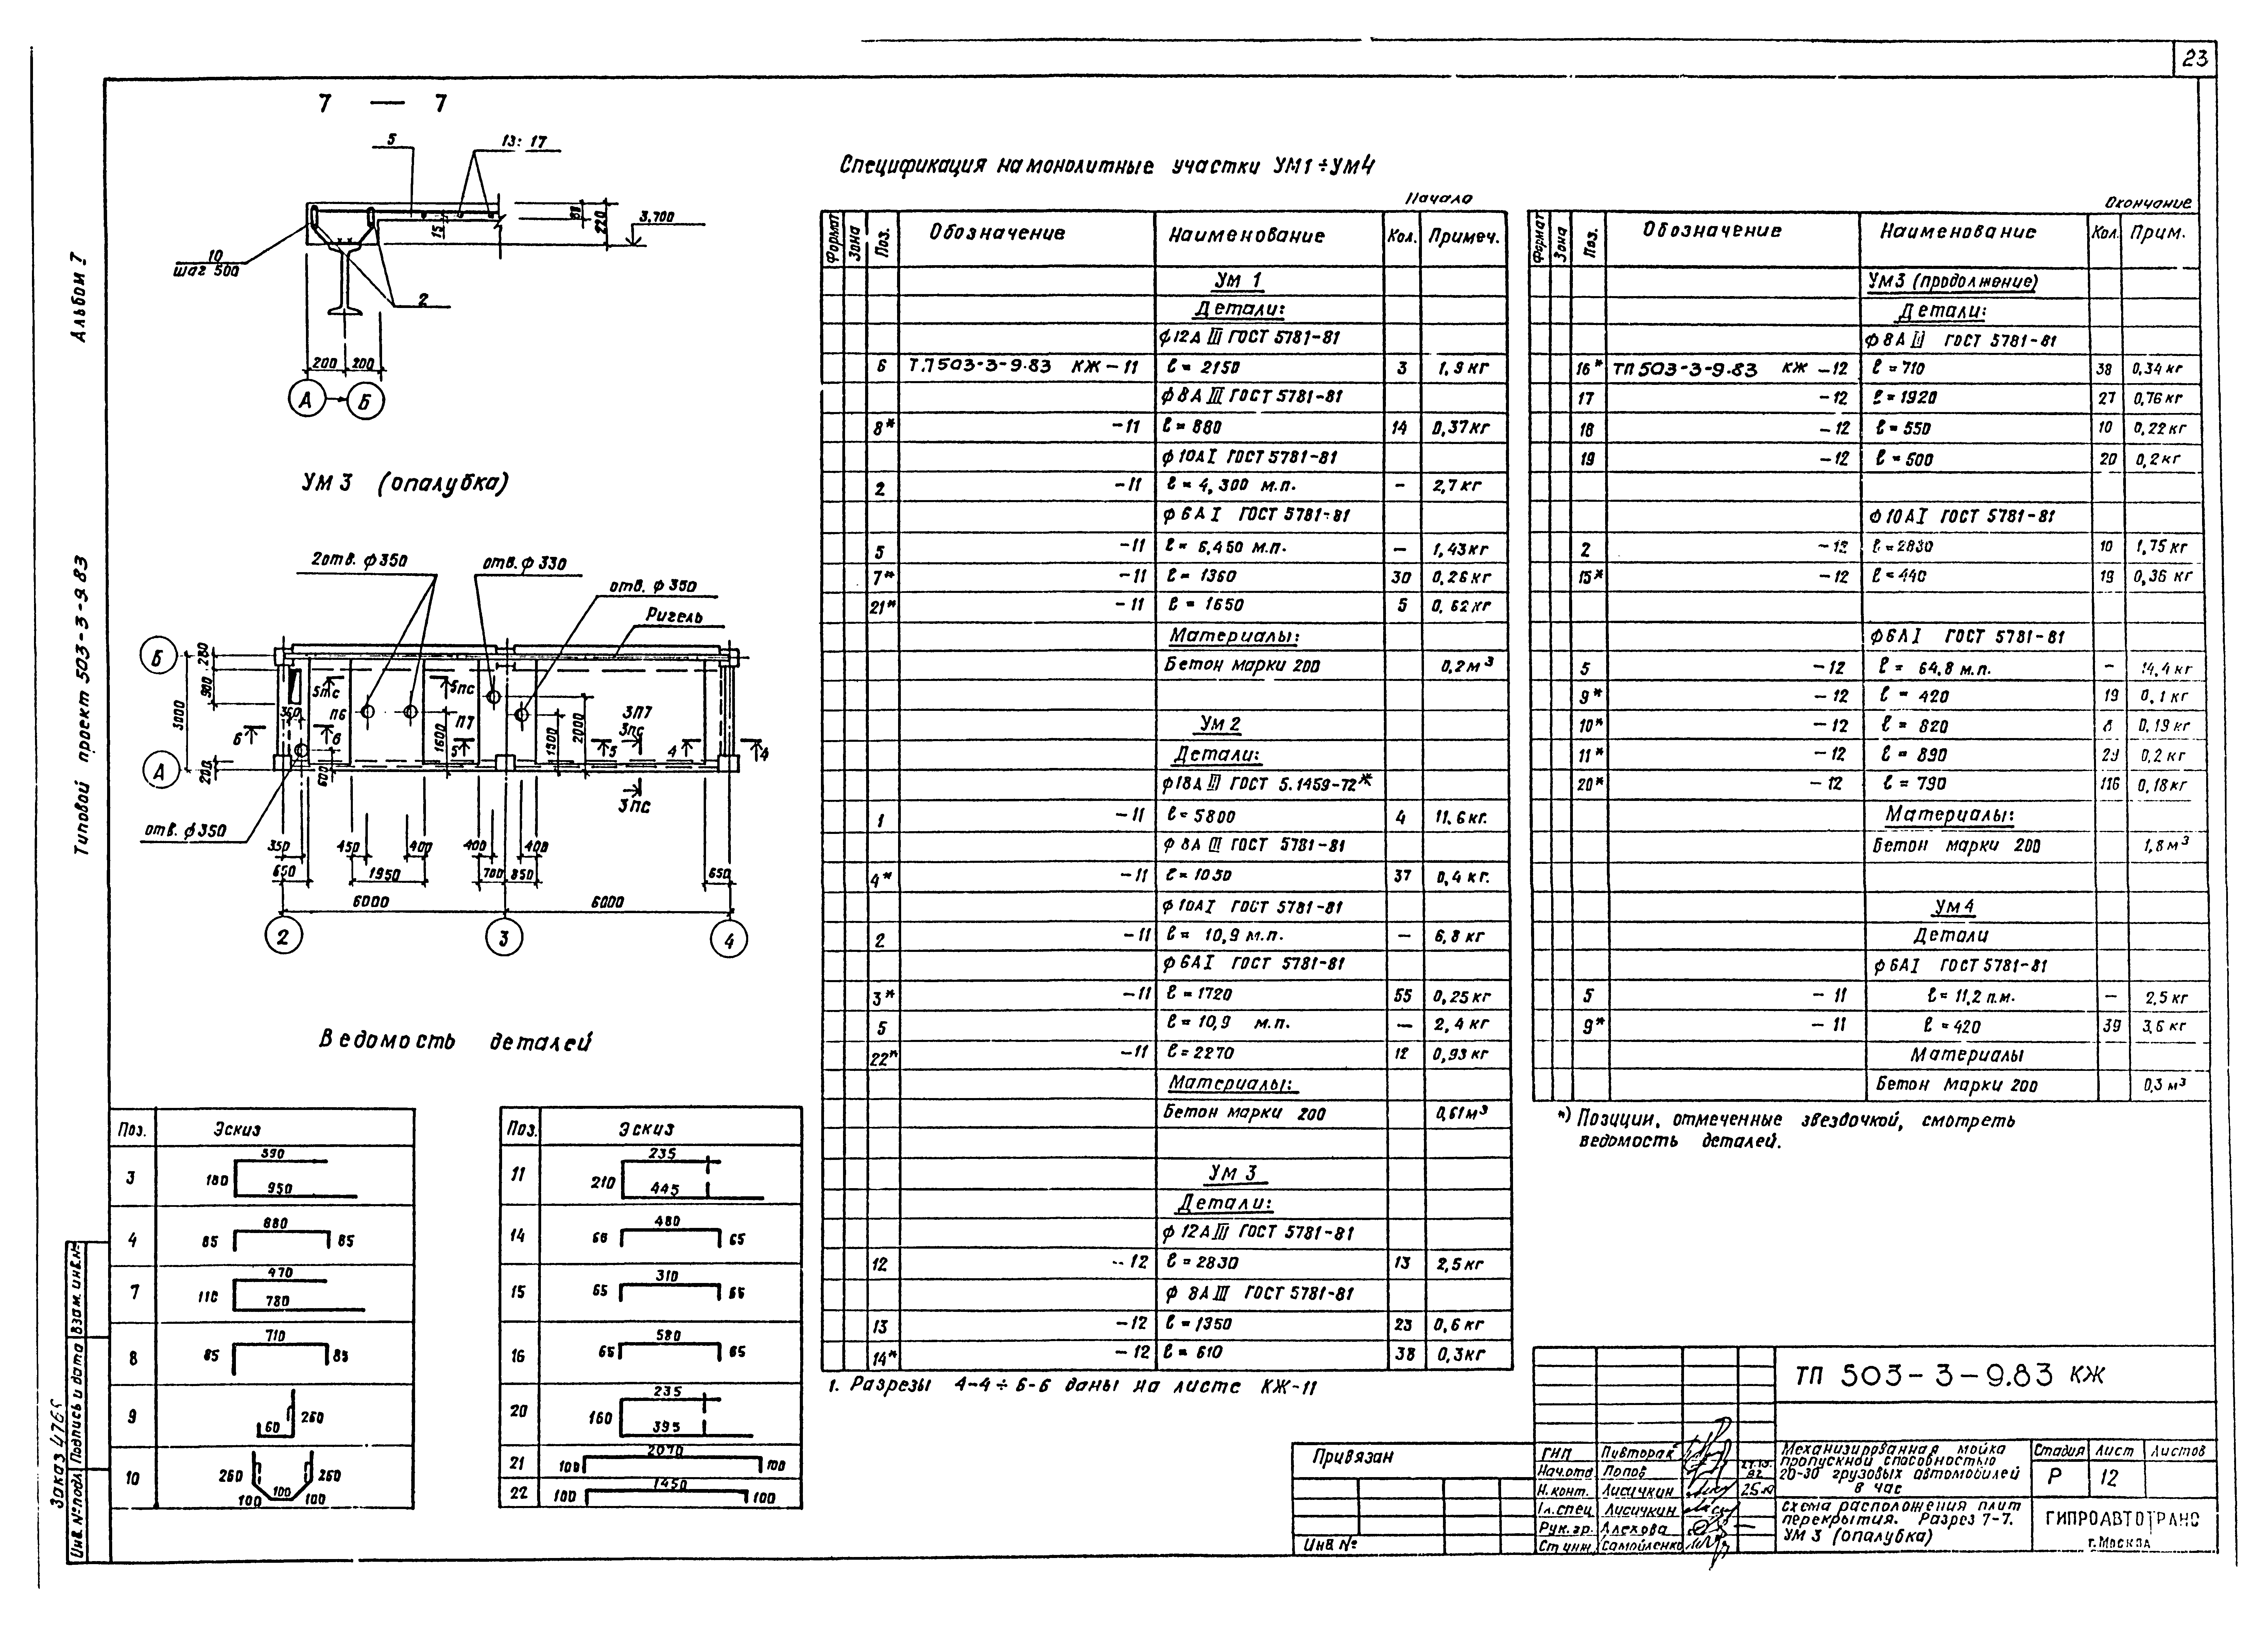 23
Альбом 7
Типовой проект 503-3-9 83
Заказ 4765
Инв. № подл. Подпись и дата Взам. инв. №
7 — 7
5
13: 17
15
80
220
3,700
10
шаг 500
2
200 200
А Б
УМ 3 (опалубка)
2отв. ф 350
отв. ф 330
отв. ф 350
Ригель
Б
А
280
900
3000
200
350
600
5пс
5пс
П6
П7
3П7
3пс
3пс
6 6
5 5
4 4
1600
1900
2000
отв. ф 350
350 450 400 400 400
650 1950 700 850 650
6000 6000
2 3 4
Ведомость деталей
Поз. Эскиз
3 180 390 950
4 85 880 85
7 110 470 780
8 85 710 85
9 60 260
10 260 260 100 100 100
Поз. Эскиз
11 210 235 445
14 480 65
15 65 310 65
16 65 580 65
20 160 235 395
21 100 2070 100
22 100 1450 100
Спецификация на монолитные участки УМ1÷УМ4
Начало
Формат Зона Поз. Обозначение Наименование Кол. Примеч.
Ум 1
Детали:
ф12А III ГОСТ 5781-81
6 Т.П503-3-9.83 КЖ-11 ℓ= 2150 3 1,9 кг
ф8А III ГОСТ 5781-81
8* -11 ℓ= 880 14 0,37кг
ф10АI ГОСТ 5781-81
2 -11 ℓ= 4,300 м.п. - 2,7 кг
ф6АI ГОСТ 5781-81
5 -11 ℓ= 6,450 м.п. - 1,43кг
7* -11 ℓ= 1360 30 0,26 кг
21* -11 ℓ= 1650 5 0,62кг
Материалы:
Бетон марки 200 0,2м³
Ум 2
Детали:
ф18А III ГОСТ 5.1459-72*
1 -11 ℓ=5800 4 11,6 кг.
ф 8А III ГОСТ 5781-81
4* -11 ℓ=1050 37 0,4 кг.
ф10АI ГОСТ 5781-81
2 -11 ℓ= 10,9 м.п. - 6,8 кг
ф6АI ГОСТ 5781-81
3* -11 ℓ=1720 55 0,25 кг
5 ℓ=10,9 м.п. - 2,4 кг
22* -11 ℓ=2270 12 0,93кг
Материалы:
Бетон марки 200 0,61м³
Ум 3
Детали:
ф 12АIII ГОСТ 5781-81
12 -12 ℓ=2830 13 2,5 кг
ф 8АIII ГОСТ 5781-81
13 -12 ℓ=1350 23 0,6 кг
14* -12 ℓ= 610 38 0,3кг
1. Разрезы 4-4÷6-6 даны на листе КЖ-11
Окончание
Формат Зона Поз. Обозначение Наименование Кол. Прим.
Ум3 (продолжение)
Детали:
ф8А III ГОСТ 5781-81
16* ТП503-3-9.83 КЖ-12 ℓ=710 38 0,34 кг
17 -12 ℓ=1920 27 0,76кг
18 -12 ℓ=550 10 0,22кг
19 -12 ℓ=500 20 0,2кг
ф10АI ГОСТ 5781-81
2 ℓ=2830 10 1,75 кг
15* -12 ℓ=440 19 0,36 кг
ф6АI ГОСТ 5781-81
5 -12 ℓ= 64,8 м.п. - 14,4 кг
9* -12 ℓ= 420 19 0,1 кг
10* -12 ℓ= 820 8 0,19кг
11* -12 ℓ= 890 29 0,2 кг
20* -12 ℓ= 790 116 0,18кг
Материалы:
Бетон марки 200 1,8м³
Ум4
Детали
ф6АI ГОСТ 5781-81
5 -11 ℓ=11,2 п.м. - 2,5 кг
9* -11 ℓ=420 39 3,6 кг
Материалы
Бетон марки 200 0,3 м³
*) Позиции, отмеченные звездочкой, смотреть
ведомость деталей.
Привязан
Инв №
ТП 503-3-9.83 КЖ
ГИП Пивторак
Нач.отд Попов
Н.конт. Лисичкин
Гл.спец Лисичкин
Рук.гр. Алехова
Ст инж. Самойленко
Механизированная мойка
пропускной способностью
20-30 грузовых автомобилей
в час
Стадия Лист Листов
Р 12
схема расположения плит
перекрытия. Разрез 7-7.
УМ 3 (опалубка)
ГИПРОАВТОТРАНС
г.Москва